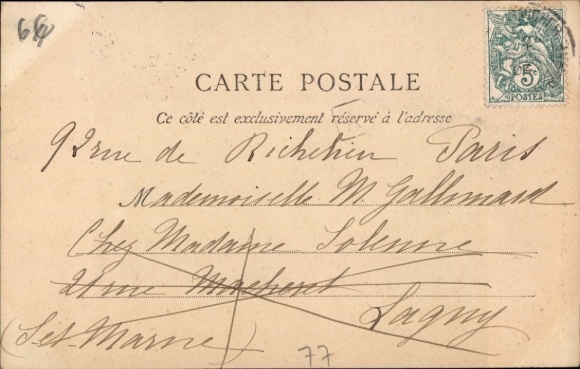 64
5
POSTES
CARTE POSTALE
Ce côté est exclusivement réservé à l'adresse
92 rue de Richelieu Paris
Mademoiselle M. Gallimard
Chez Madame Solenne
21 rue Macheret
Lagny
(S et Marne)
77